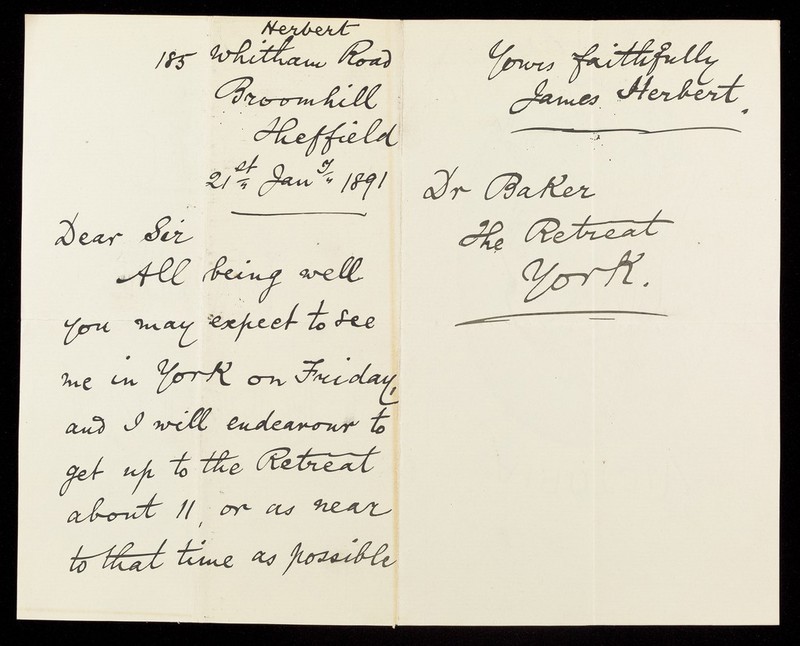 Herbert
185 Whitham Road
Broomhill
Sheffield
21st Jany 1891
Dear Sir
All being well
you may expect to see
me in York on Friday,
and I will endeavour to
get up to the Retreat
about 11, or as near
to that time as possible
Yours faithfully
James Herbert.
Dr Baker
The Retreat
York.